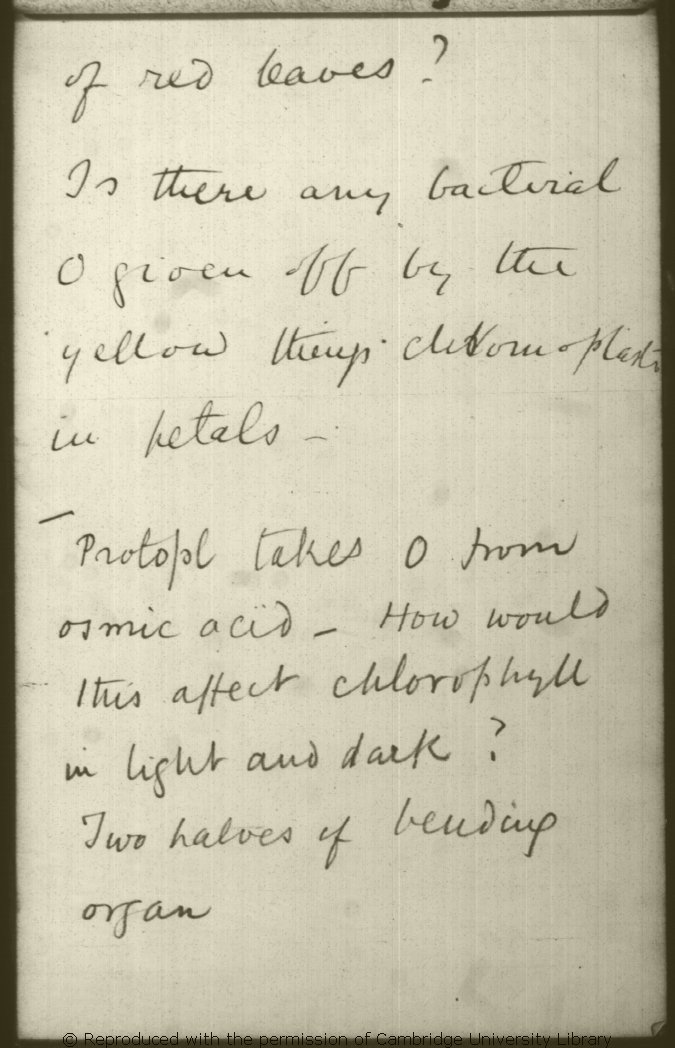 of red leaves?
Is there any bacterial
O given off by the
yellow things chromoplasts
in petals –
Protopl takes O from
osmic acid – How would
this affect chlorophyll
in light and dark?
Two halves of bending
organ
© Reproduced with the permission of Cambridge University Library